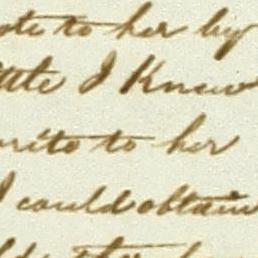 ote to her by
ittle I Knew
rite to her
I could obtain